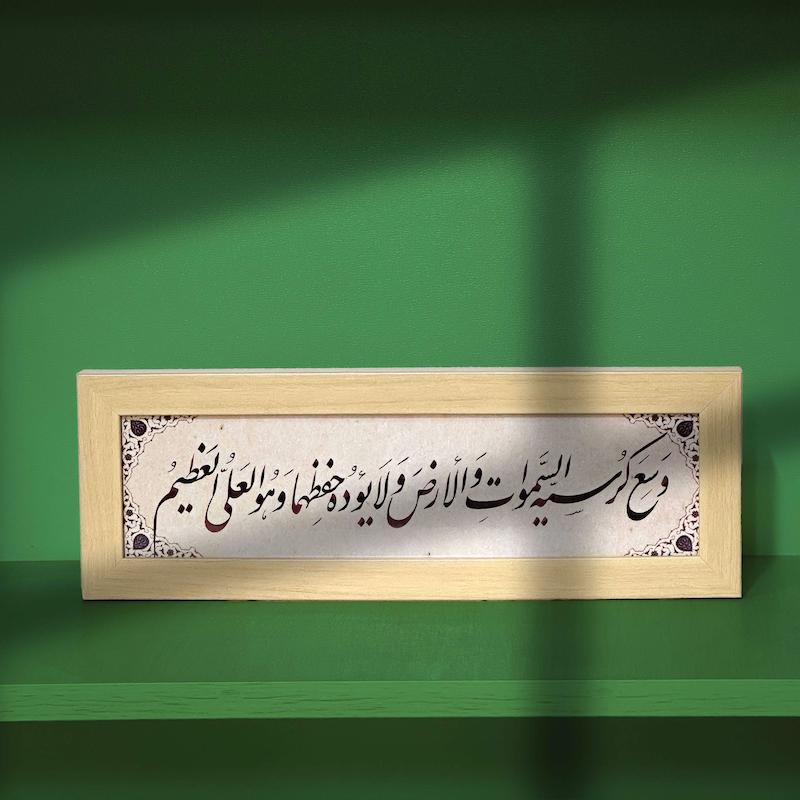 وَسِعَ كُرْسِیُّهُ السَّمٰوَاتِ وَالْأَرْضَ وَلَا یَئُودُهُ حِفْظُهُمَا وَهُوَ الْعَلِیُّ الْعَظِیمُ